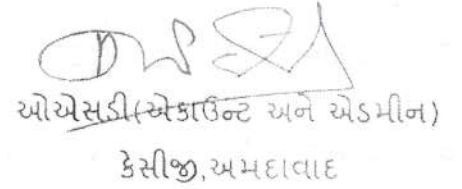 ઓએસડી(એકાઉન્ટ અને એડમીન)
કેસીજી,અમદાવાદ